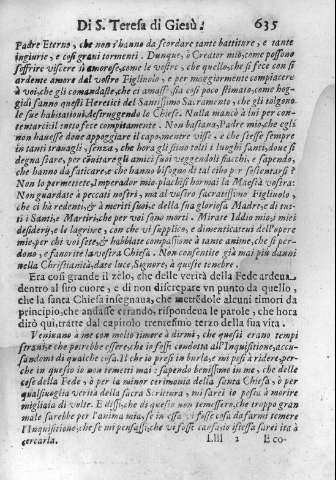 Di S. Teresa di Giesù. 635
Padre Eterno, che non s'hanno da scordare tante battiture, e tante
ingiurie, e così gravi tormenti. Dunque, ò Creator mio, come possono
soffrire viscere sì amorose, come le vostre, che quello, che si fece con sì
ardente amore dal vostro Figliuolo, e per maggiormente compiacere
à voi, che gli comandaste, che ci amasse, sia così poco stimato, come hog-
gidì fanno questi Heretici del Santissimo Sacramento, che gli tolgono
le sue habitationi, destruggendo le Chiese. Nulla mancò à lui per con-
tentarci: il tutto fece compitamente. Non bastava, Padre mio, che egli
non havesse dove appoggiare il capo, mentre visse, e che stesse sempre
in tanti travagli, senza, che hora gli siano tolti i luoghi santi, dove si
degna stare, per convitare gli amici suoi veggendoli fiacchi, e sapendo,
che hanno da faticare, e che hanno bisogno di tal cibo per sostentarsi?
Non lo permettete, Imperador mio, plachisi hormai la Maestà vostra:
Non guardate à peccati nostri, mà al vostro sacratissimo Figliuolo,
che ci hà redenti, & à meriti suoi, e della sua gloriosa Madre, e di tut-
ti i Santi, e Martiri, che per voi sono morti. Mirate Iddio mio, i miei
desiderij, e le lagrime, con che vi supplico, e dimenticatevi dell'opere
mie, per chi voi sete, & habbiate compassione à tante anime, che si per-
dono, e favorite la vostra Chiesa. Non consentite già mai più danni
nella Christianità, date luce, Signore, à queste tenebre.
Era così grande il zelo, che delle verità della Fede ardeua
dentro al suo cuore, e di non discrepare vn punto da quello,
che la santa Chiesa insegnaua, che mettēdole alcuni timori da
principio, che andasse errando, rispondeua le parole, che hora
dirò qui, tratte dal capitolo trentesimo terzo della sua vita.
Venivano à me con molto timore à dirmi, che questi erano tempi
strani, e che potrebbe essere, che io fossi condotta all'Inquisitione, accu-
sandomi di qualche cosa. Il che io presi in burla, e mi posi à ridere, per-
che in questo io non temetti mai: sapendo benissimo in me, che delle
cose della Fede, ò per la minor cerimonia della santa Chiesa, ò per
qualsivoglia verità della sacra Scrittura, mi sarei io posta à morire
migliaia di volte. E dissi, che di questo non temessero, che troppo gran
male sarebbe per l'anima mia, se in essa vi fosse cosa da farmi temere
l'Inquisitione, che se mi pensassi, che vi fosse causa, io istessa sarei ita à
cercarla. Llll 2 E co-